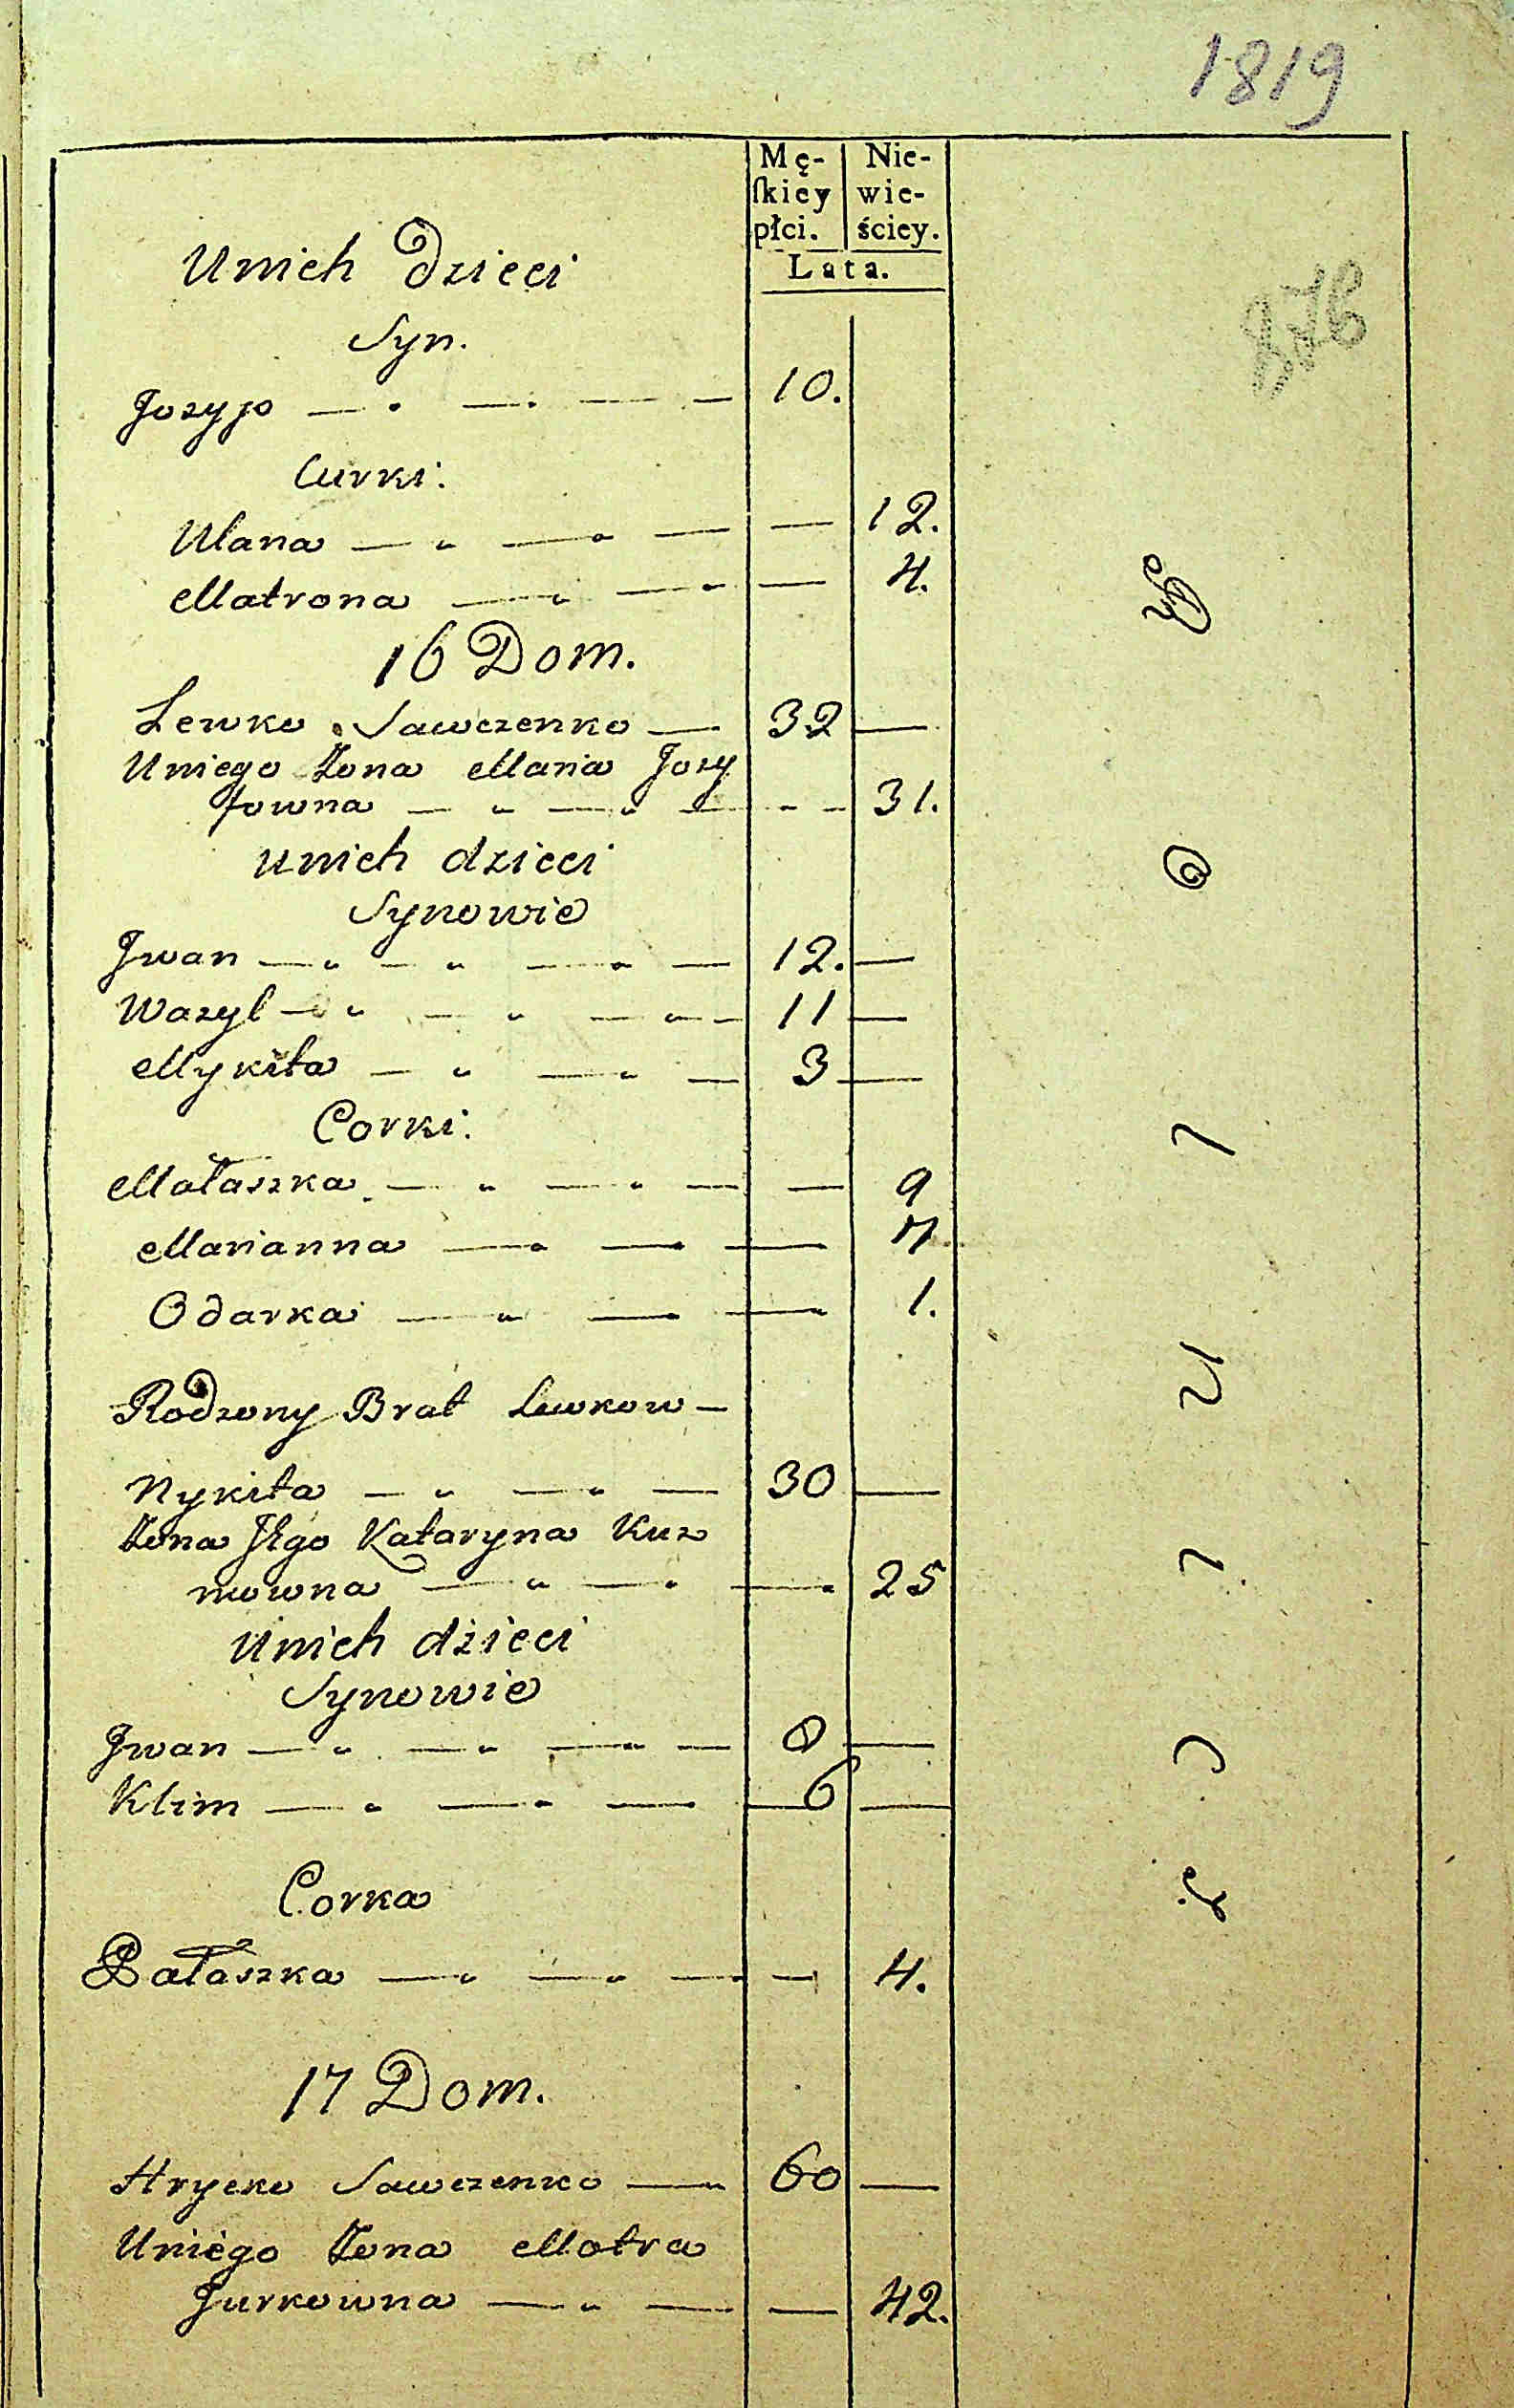 1819
Mę- Nie-
ſkiey wie-
płci. ściey.
Lata.
Unich Dzieci
Syn.
Jozyp — — — — 10.
Curki.
Ulana — — — — 12.
Matrona — — — 4.
16 Dom.
Lewko Sawczenko — 32 —
Uniego Żona Maria Jozy
fowna — — — — 31.
Unich dzieci
Synowie
Jwan — — — — 12. —
Wazyl — — — — 11 —
Mykita — — — 3 —
Corki.
Małaszka — — — — 9
Marianna — — — 7
Odarka — — — 1.
Rodzony Brat Lewkow —
Nykita — — — 30 —
Żona Jego Kataryna Kuz
mowna — — — 25
Unich dzieci
Synowie
Jwan — — — — 8 —
Klim — — — — 6 —
Corka
Pałaszka — — — — 4.
17 Dom.
Hrycko Sawczenko — 60 —
Uniego Żona Motra
Jurkowna — — — 42.